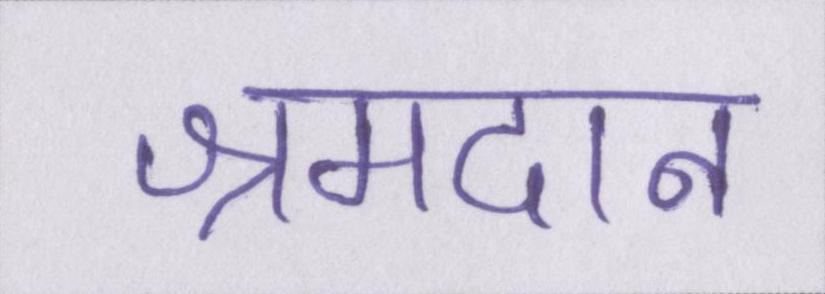 श्रमदान